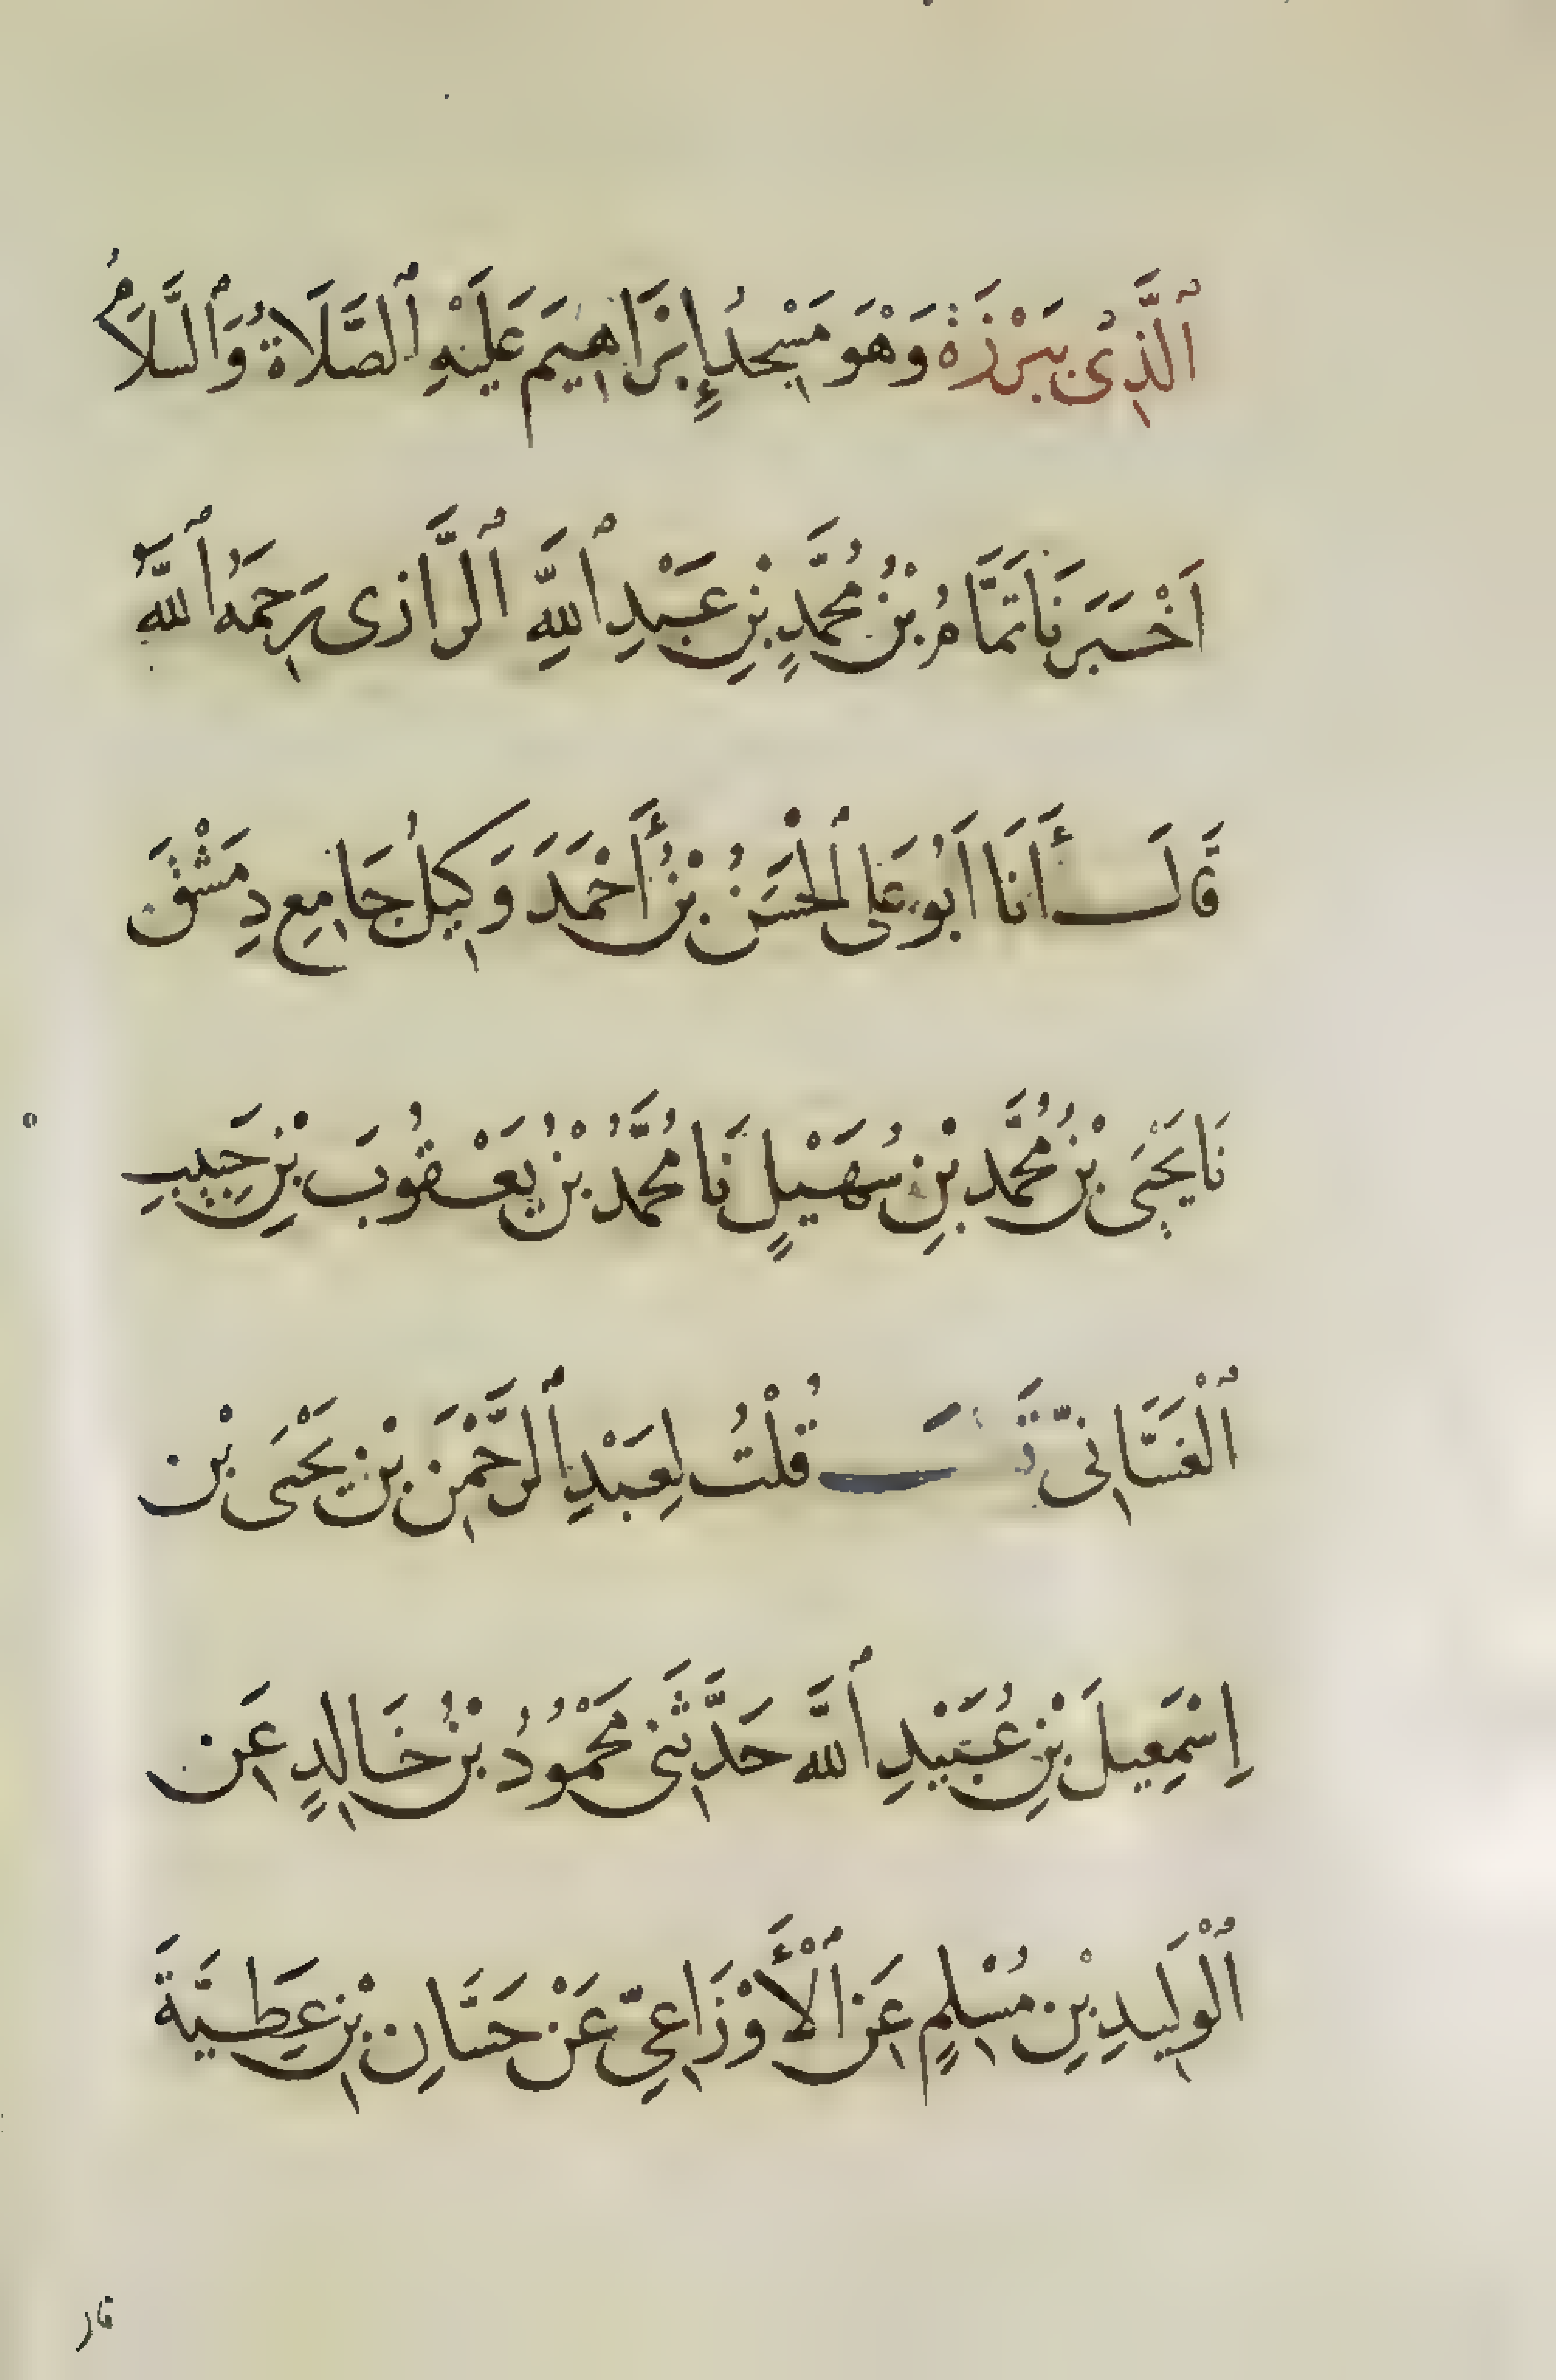 ٱلَّذِي بِبَرْزَةَ وَهْوَ مَسْجِدُ إِبْرَاهِيمَ عَلَيْهِ ٱلصَّلَاةُ وَٱلسَّلَامُ
اَخْبَرَنَا تَمَّامُ بْنُ مُحَمَّدٍ بْنِ عَبْدِ ٱللَّهِ ٱلرَّازِى رَحِمَهُ ٱللَّهُ
قَالَ أَنَا اَبُو عَلِى ٱلْحَسَنُ بْنُ أَحْمَدَ وَكِيلُ جَامِعِ دِمَشْقَ
نَا يَحْيَى بْنُ مُحَمَّدِ بْنِ سُهَيْلٍ نَا مُحَمَّدُ بْنُ يَعْقُوبَ بْنِ حَبِيبِ
ٱلْغَسَّانِىّ قَالَ قُلْتُ لِعَبْدِ ٱلرَّحْمٰنِ بْنِ يَحْيَى بْن
اِسْمٰعِيلَ بْنِ عُبَيْدِ ٱللَّه حَدَّثَنِى مَحْمُودُ بْنُ خَالِدٍ عَن
ٱلْوَلِيدِ بْنِ مُسْلِمٍ عَنِ ٱلْأَوْزَاعِىِّ عَنْ حَسَّانِ بْنِ عَطِيَّةَ
قار